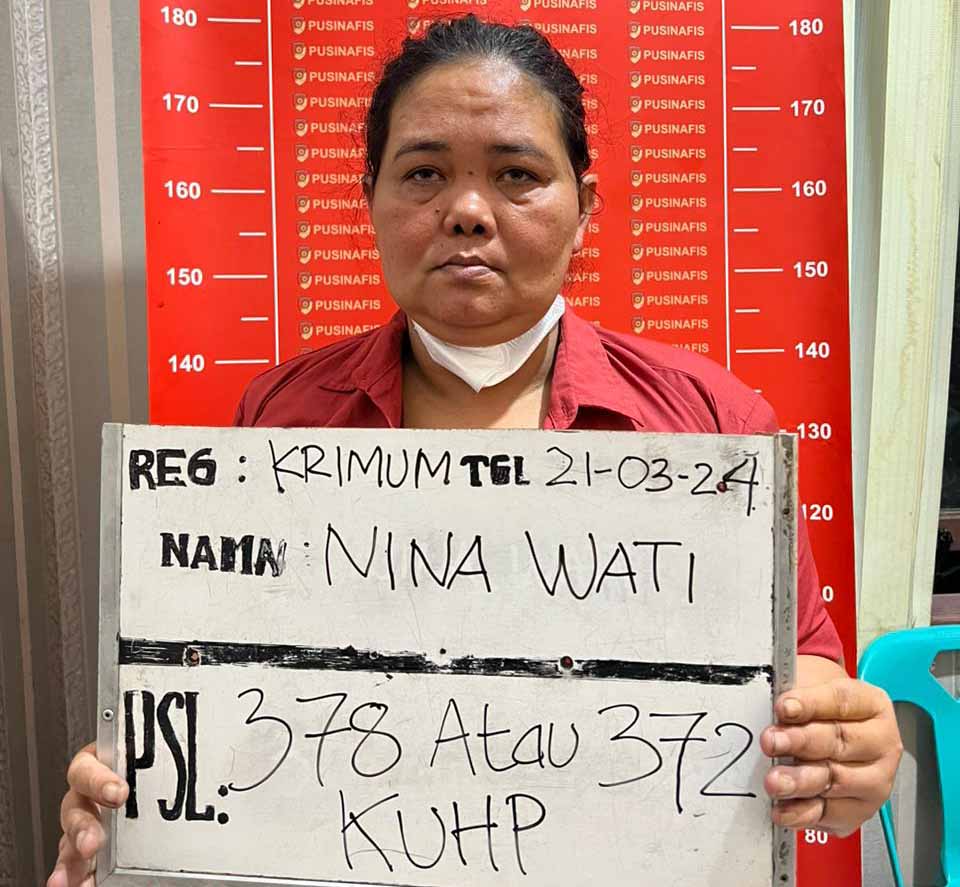 PUSINAFIS PUSINAFIS PUSINAFIS PUSINAFIS
180 PUSINAFIS PUSINAFIS 180
PUSINAFIS PUSINAFIS
PUSINAFIS PUSINAFIS
170 PUSINAFIS PUSINAFIS 170
PUSINAFIS PUSINAFIS
PUSINAFIS PUSINAFIS
160 PUSINAFIS PUSINAFIS 160
PUSINAFIS PUSINAFIS
PUSINAFIS PUSINAFIS
PUSINAFIS PUSINAFIS
150 PUSINAFIS PUSINAFIS 150
PUSINAFIS PUSINAFIS
PUSINAFIS PUSINAFIS
140 140
130
REG : KRIMUM TGL 21-03-24
120
NAMA : NINA WATI
PSL. 378 Atau 372
KUHP
80